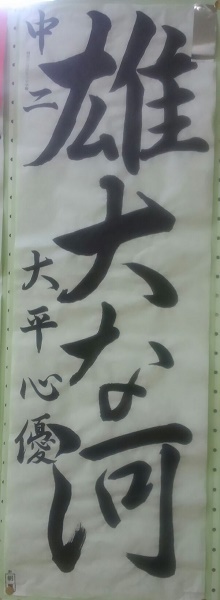 雄大な河
中二
大平心優